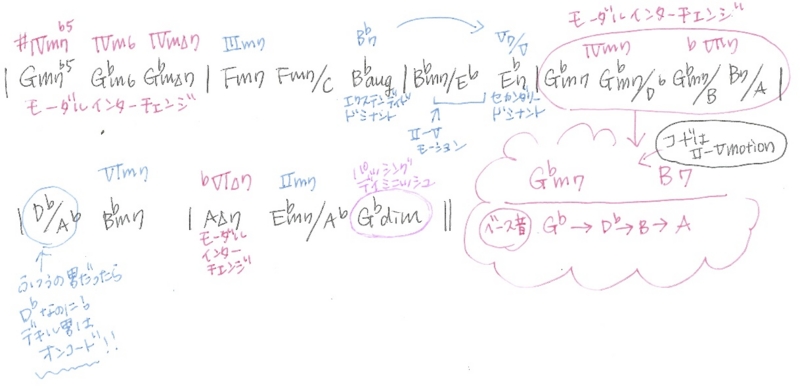 #Ⅳm7 b5 Ⅳm6 ⅣmΔ7 Ⅲm7 Bb7 Ⅴ7/Ⅴ モーダルインターチェンジ
Ⅳm7 b Ⅶ7
| Gm7 b5 Gbm6 GbmΔ7 | Fm7 Fm7/C Bbaug | Bbm7/Eb Eb7 | Gbm7 Gbm7/Db Gbm7/B B7/A |
モーダルインターチェンジ エクステンディド ドミナント Ⅱ-Ⅴ モーション セカンダリー ドミナント
コードは Ⅱ-Ⅴ motion
Gbm7 B7
ベース音 Gb → Db → B → A
Ⅵm7 b ⅥΔ7 Ⅱm7 パッシング ディミニッシュ
| Db/Ab Bbm7 | AΔ7 Ebm7/Ab Gbdim ||
モーダル
インター
チェンジ
ふつうの男だったら
Dbなのにも
デキル男は
オンコード!!